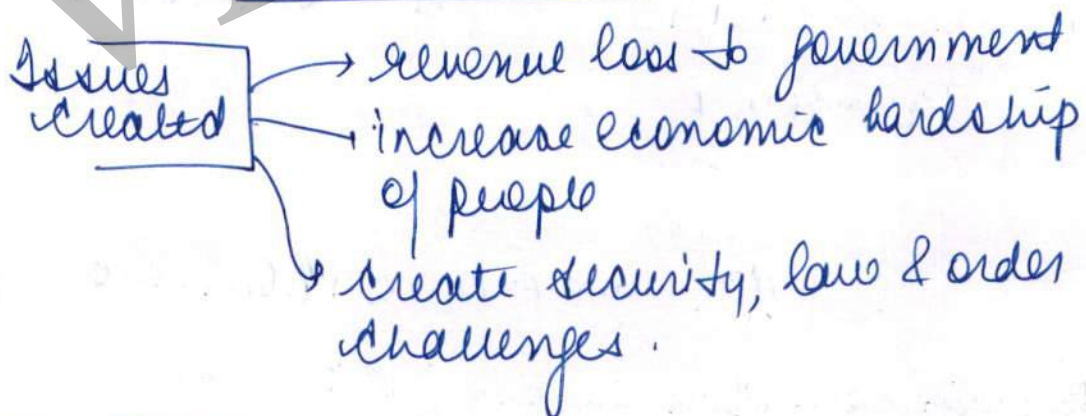 Issues created
→ revenue loss to government
→ increase economic hardship
of people
→ create security, law & order
challenges.